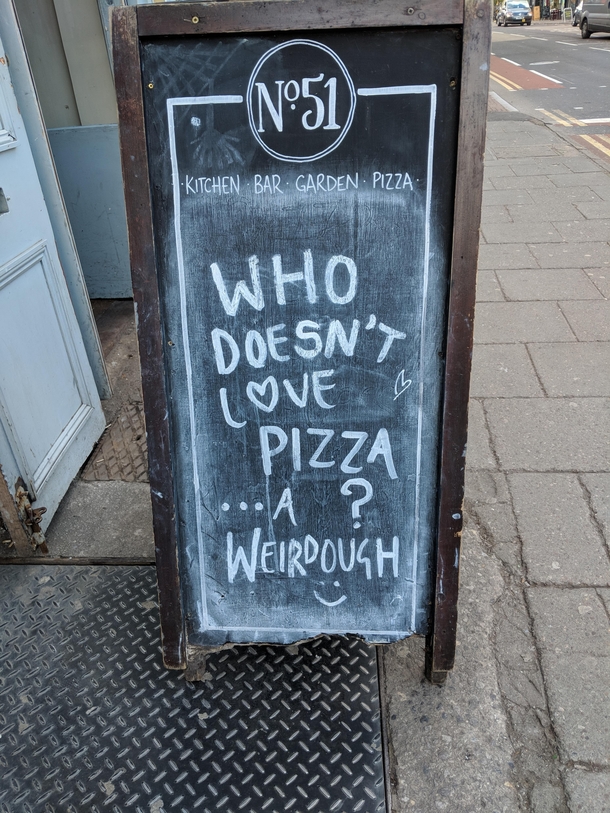 No51
·KITCHEN·BAR·GARDEN·PIZZA·
WHO
DOESN'T
L♡VE
PIZZA
...A ?
WEIRDOUGH